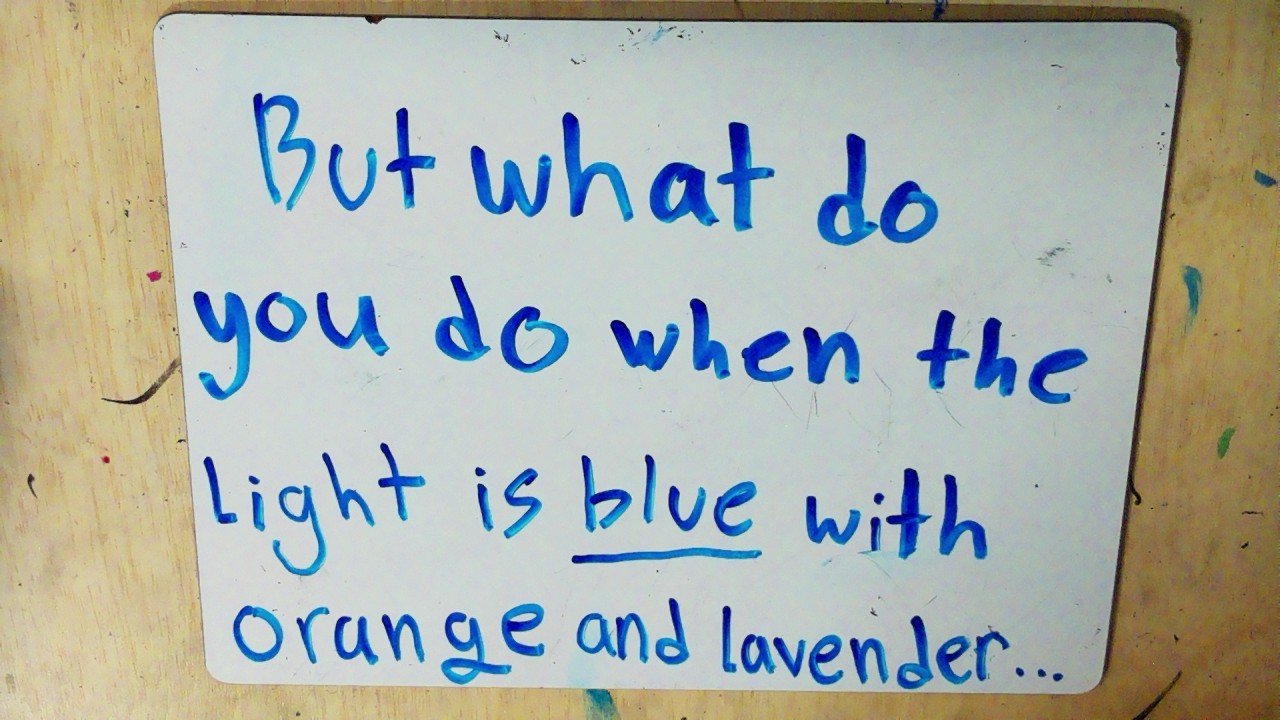 But what do
you do when the
Light is blue with
orange and lavender...